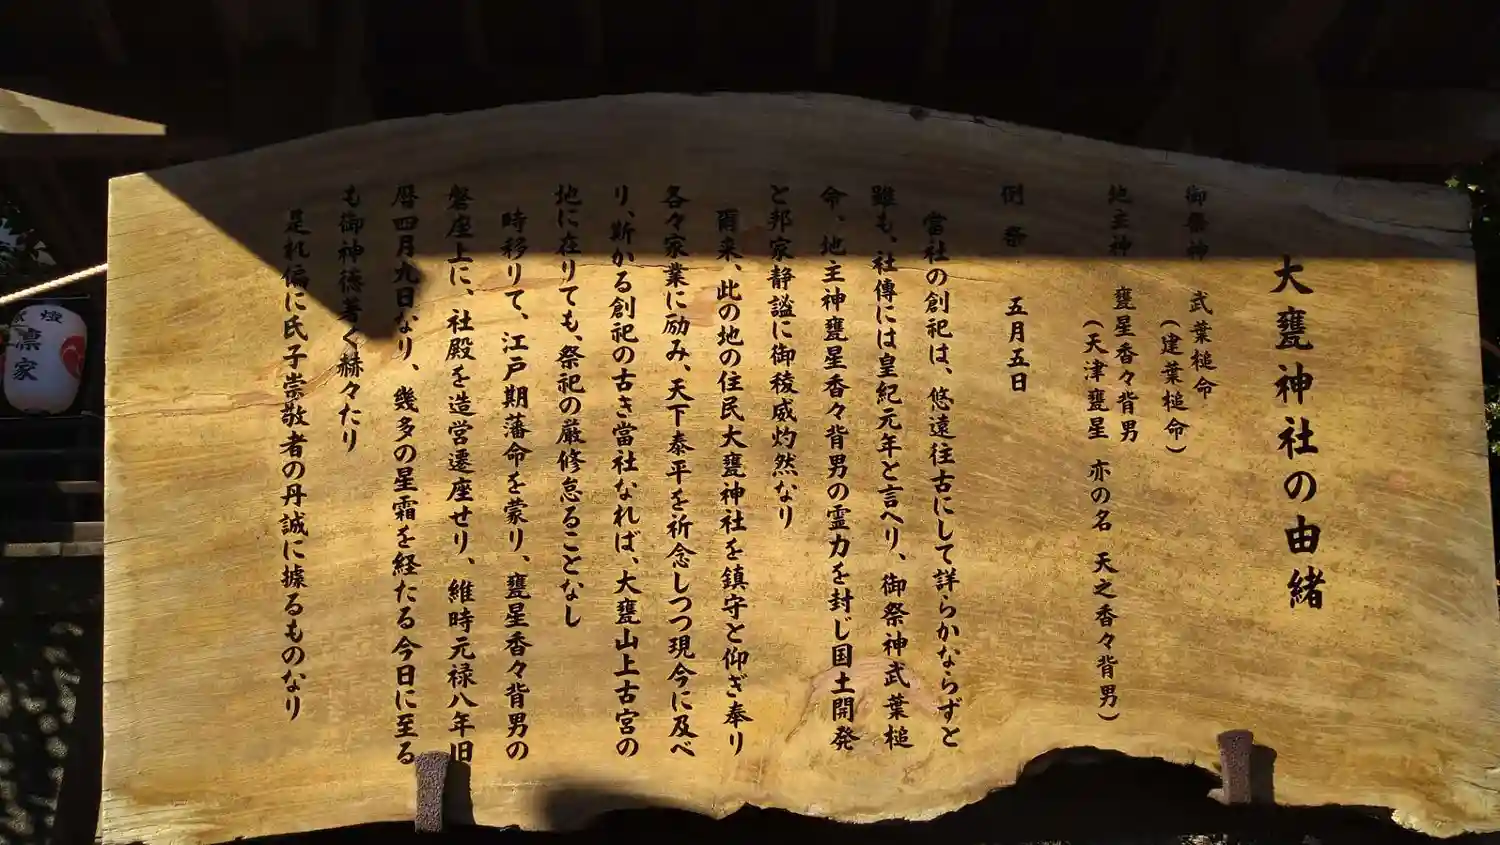 大甕神社の由緒
御祭神 武葉槌命
(建葉槌命)
地主神 甕星香々背男
(天津甕星 亦の名 天之香々背男)
例祭 五月五日
當社の創祀は、悠遠往古にして詳らかならずと
雖も、社傳には皇紀元年と言へり、御祭神武葉槌
命、地主神甕星香々背男の霊力を封じ国土開発
と邦家静謐に御稜威灼然なり
爾来、此の地の住民大甕神社を鎮守と仰ぎ奉り
各々家業に励み、天下泰平を祈念しつつ現今に及べ
り、斯かる創祀の古き當社なれば、大甕山上古宮の
地に在りても、祭祀の厳修怠ることなし
時移りて、江戸期藩命を蒙り、甕星香々背男の
磐座上に、社殿を造営遷座せり、維時元禄八年旧
暦四月九日なり、幾多の星霜を経たる今日に至る
も御神徳著く赫々たり
是れ偏に氏子崇敬者の丹誠に據るものなり
燈
凛家